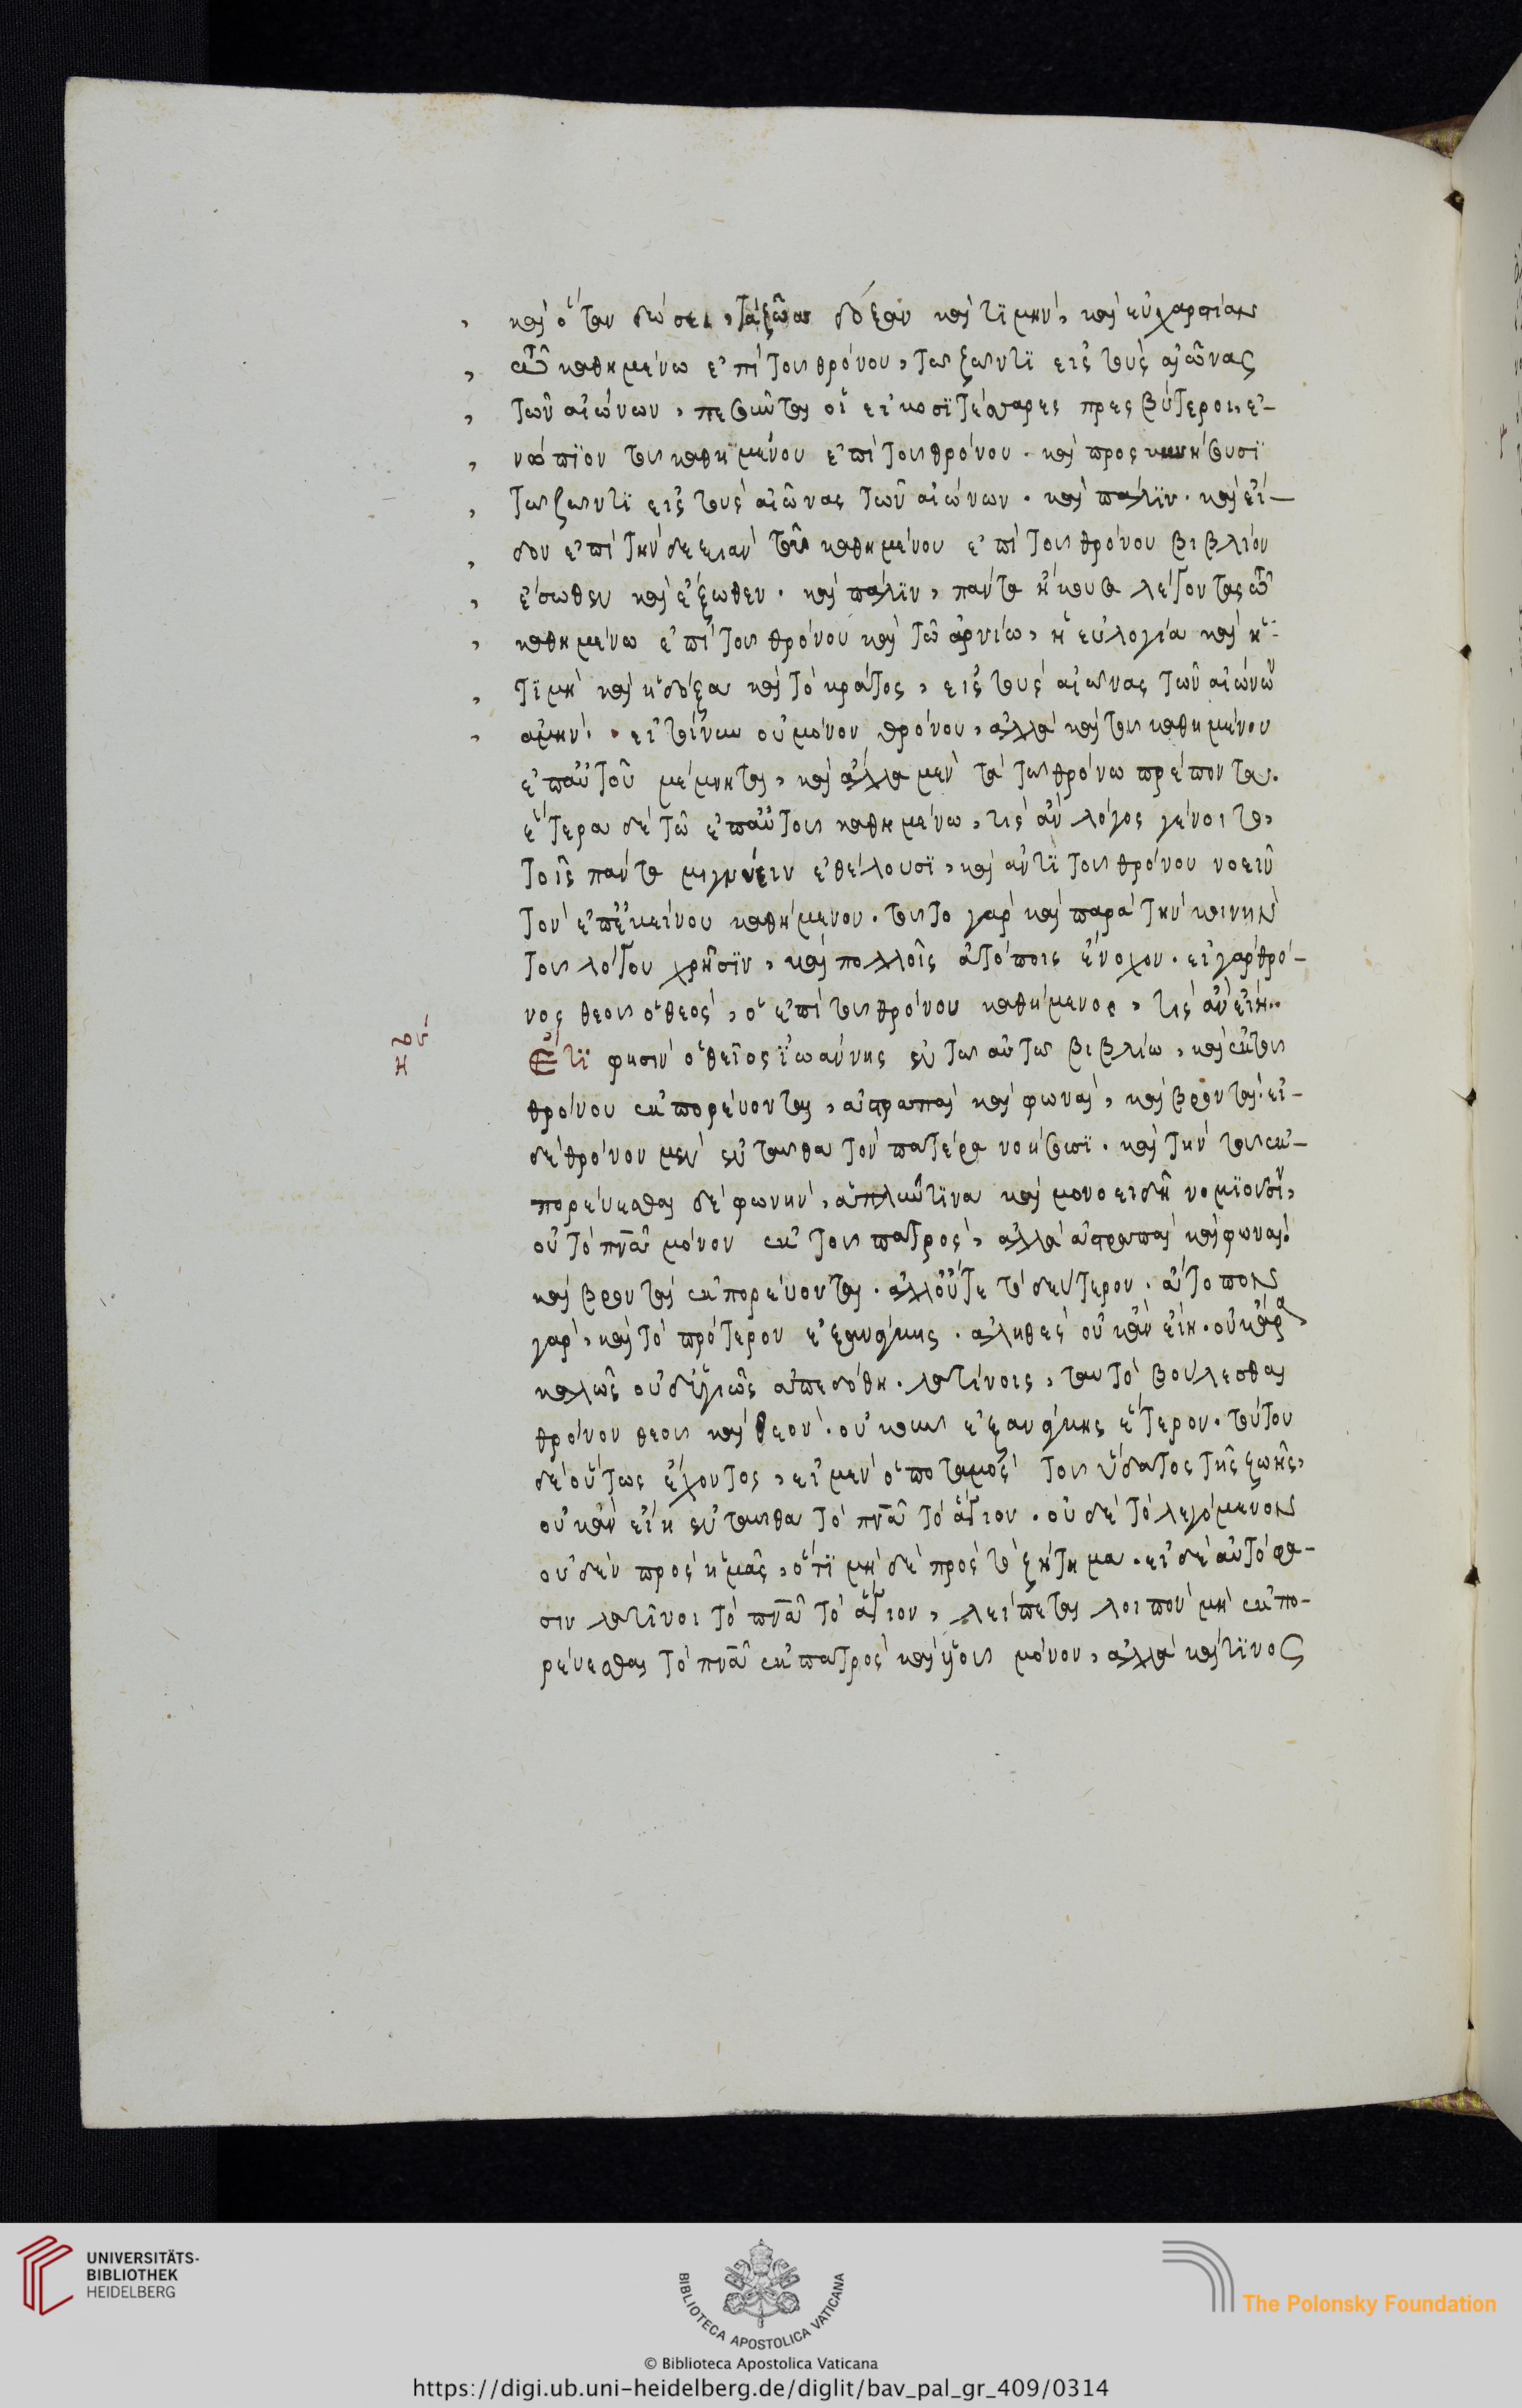 καὶ ὅταν δώσει, τὰ ζῶα δόξαν καὶ τϊμὴν, καὶ εὐχαριστίαν
τῶ καθημένω ἐπὶ τοῦ θρόνου, τῶ ζῶντϊ εἰς τοὺς αἰῶνας
τῶν αἰώνων, πεσοῦνται οἱ εἰκοσϊτέσσαρες πρεσβύτεροι, ἐ-
νώπϊον τοῦ καθημένου ἐπὶ τοῦ θρόνου. καὶ προσκυνήσουσϊ
τῶ ζῶντϊ εἰς τοὺς αἰῶνας τῶν αἰώνων. καὶ πάλϊν. καὶ εἶ-
δον ἐπὶ τὴν δεξιὰν τοῦ καθημένου ἐπὶ τοῦ θρόνου βιβλίον
ἔσωθεν καὶ ἔξωθεν. καὶ πάλϊν, πάντα ἤκουσα λέγοντας τῶ
καθημένω ἐπὶ τοῦ θρόνου καὶ τῶ ἀρνίω, ἡ εὐλογία καὶ ἡ
τϊμὴ καὶ ἡ δόξα καὶ τὸ κράτος, εἰς τοὺς αἰῶνας τῶν αἰώνων
ἀμήν. εἰ τοίνυν οὐ μόνον θρόνου, ἀλλὰ καὶ τοῦ καθημένου
ἐπ αὐτοῦ μέμνηται, καὶ ἄλλα μὲν τὰ τῶ θρόνω πρέποντα.
ἕτερα δὲ τῶ ἐπ αὐτοῦ καθημένω, τίς ἂν λόγος γένοιτο,
τοῖς πάντα μιγνύειν ἐθέλουσϊ, καὶ ἀντὶ τοῦ θρόνου νοεῖν
τὸν ἐπ ἐκείνου καθήμενον. τοῦτο γὰρ καὶ παρὰ τὴν κοινὴν
τοῦ λόγου χρῆσϊν, καὶ πολλοῖς ἀτόποις ἔνοχον. εἰ γὰρ θρό-
νος θεοῦ ὁ θεός, ὁ ἐπὶ τοῦ θρόνου καθήμενος, τίς ἂν εἴη.
Ἔτϊ φησὶν ὁ θεῖος ἰωάννης ἐν τῶ αὐτῶ βιβλίω, καὶ ἐκ τοῦ
θρόνου ἐκπορεύονται, ἀστραπαὶ καὶ φωναὶ, καὶ βρονταί. εἰ
δὲ θρόνον μὲν ἐνταῦθα τὸν πατέρα νοήσωσϊ. καὶ τὴν τοῦ ἐκ-
πορεύεσθαι δὲ φωνὴν, ἁπλῶς τϊνα καὶ μονοειδῆ νομϊοῦσϊν,
οὐ τὸ πνα μόνον ἐκ τοῦ πατρὸς, ἀλλὰ ἀστραπαὶ καὶ φωναὶ
καὶ βρονταὶ ἐκπορεύονται. ἀλλ οὔτε τὸ δεύτερον. ἄτοπον
γάρ, καὶ τὸ πρότερον ἐξανάγκης. ἀληθὲς οὐκ ἂν εἴη. οὐκ ἄρα
καλῶς οὐδ ὑγιῶς ἀπεδόθη. λατίνοις, ταυτὸ βούλεσθαι
θρόνον θεοῦ καὶ θεόν. οὐκοῦν ἐξανάγκης ἕτερον. τούτου
δὲ οὕτως ἔχοντος, εἰ μὲν ὁ ποταμὸς τοῦ ὕδατος τῆς ζωῆς,
οὐκ ἂν εἴη ἐνταῦθα τὸ πνα τὸ ἅγιον. οὐδὲ τὸ λεγόμενον
οὐδὲν πρὸς ἡμᾶς, ὅτϊ μὴ δὲ πρὸς τὸ ζήτημα. εἰ δὲ αὐτό φα-
σιν λατῖνοι τὸ πνα τὸ ἅγιον, λείπεται λοιπὸν μὴ ἐκπο-
ρεύεσθαι τὸ πνα ἐκ πατρὸς καὶ υἱοῦ μόνον, ἀλλὰ καὶ τϊνος
UNIVERSITÄTS-
BIBLIOTHEK
HEIDELBERG
BIBLIOTECA APOSTOLICA VATICANA
The Polonsky Foundation
© Biblioteca Apostolica Vaticana
https://digi.ub.uni-heidelberg.de/diglit/bav_pal_gr_409/0314